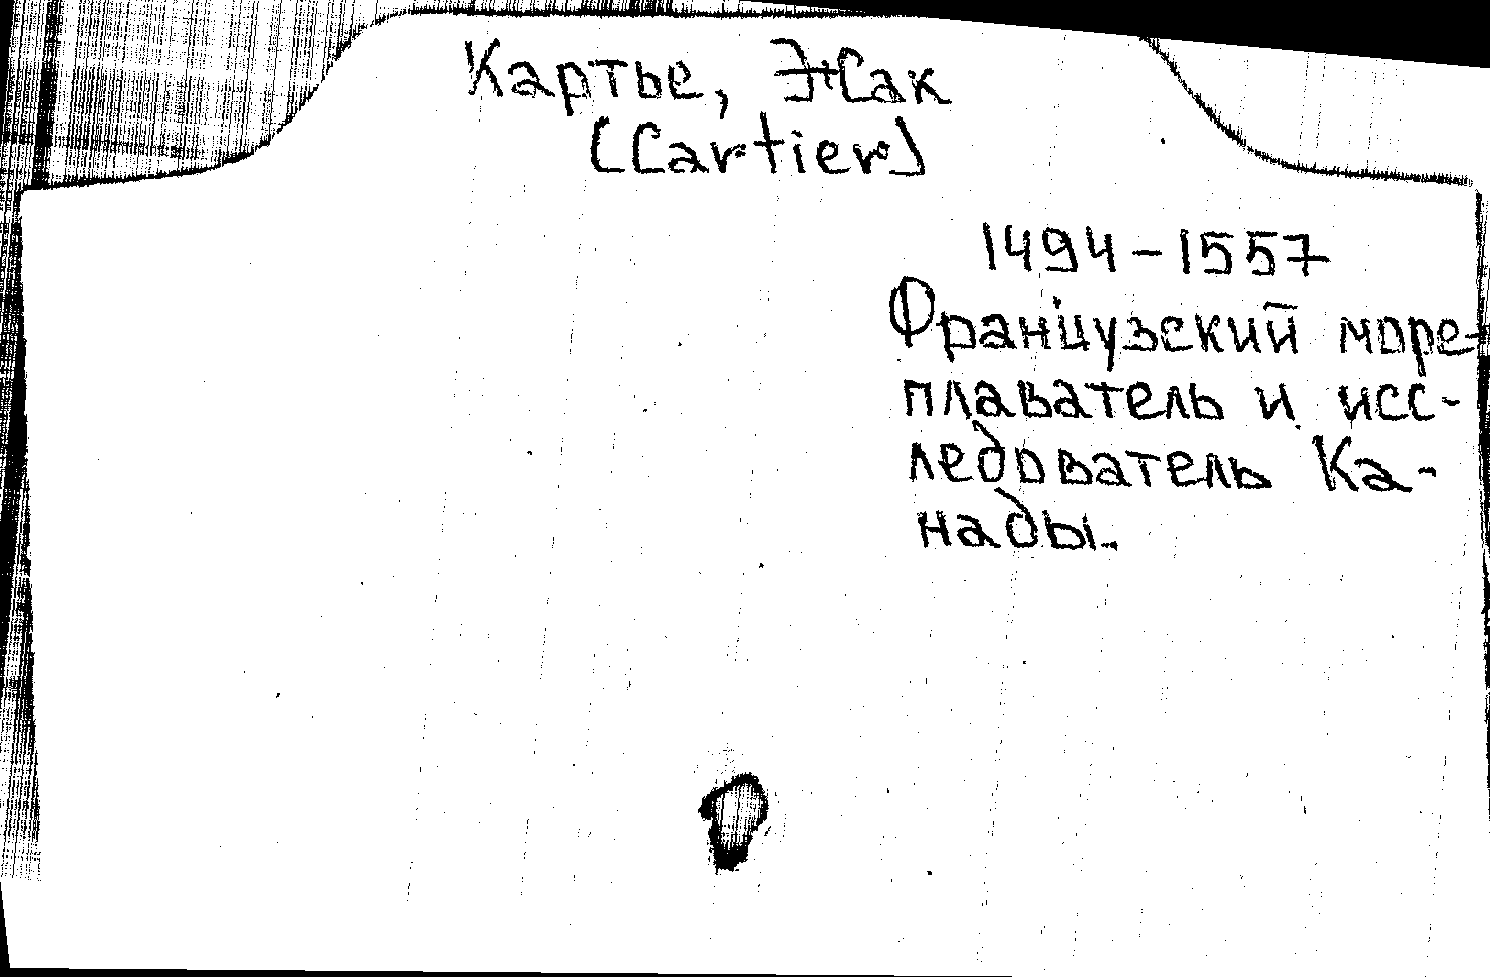 Картье, Жак
(Cartier)
1494-1557
Французский море-
плаватель и исс-
ледователь Ка-
нады.